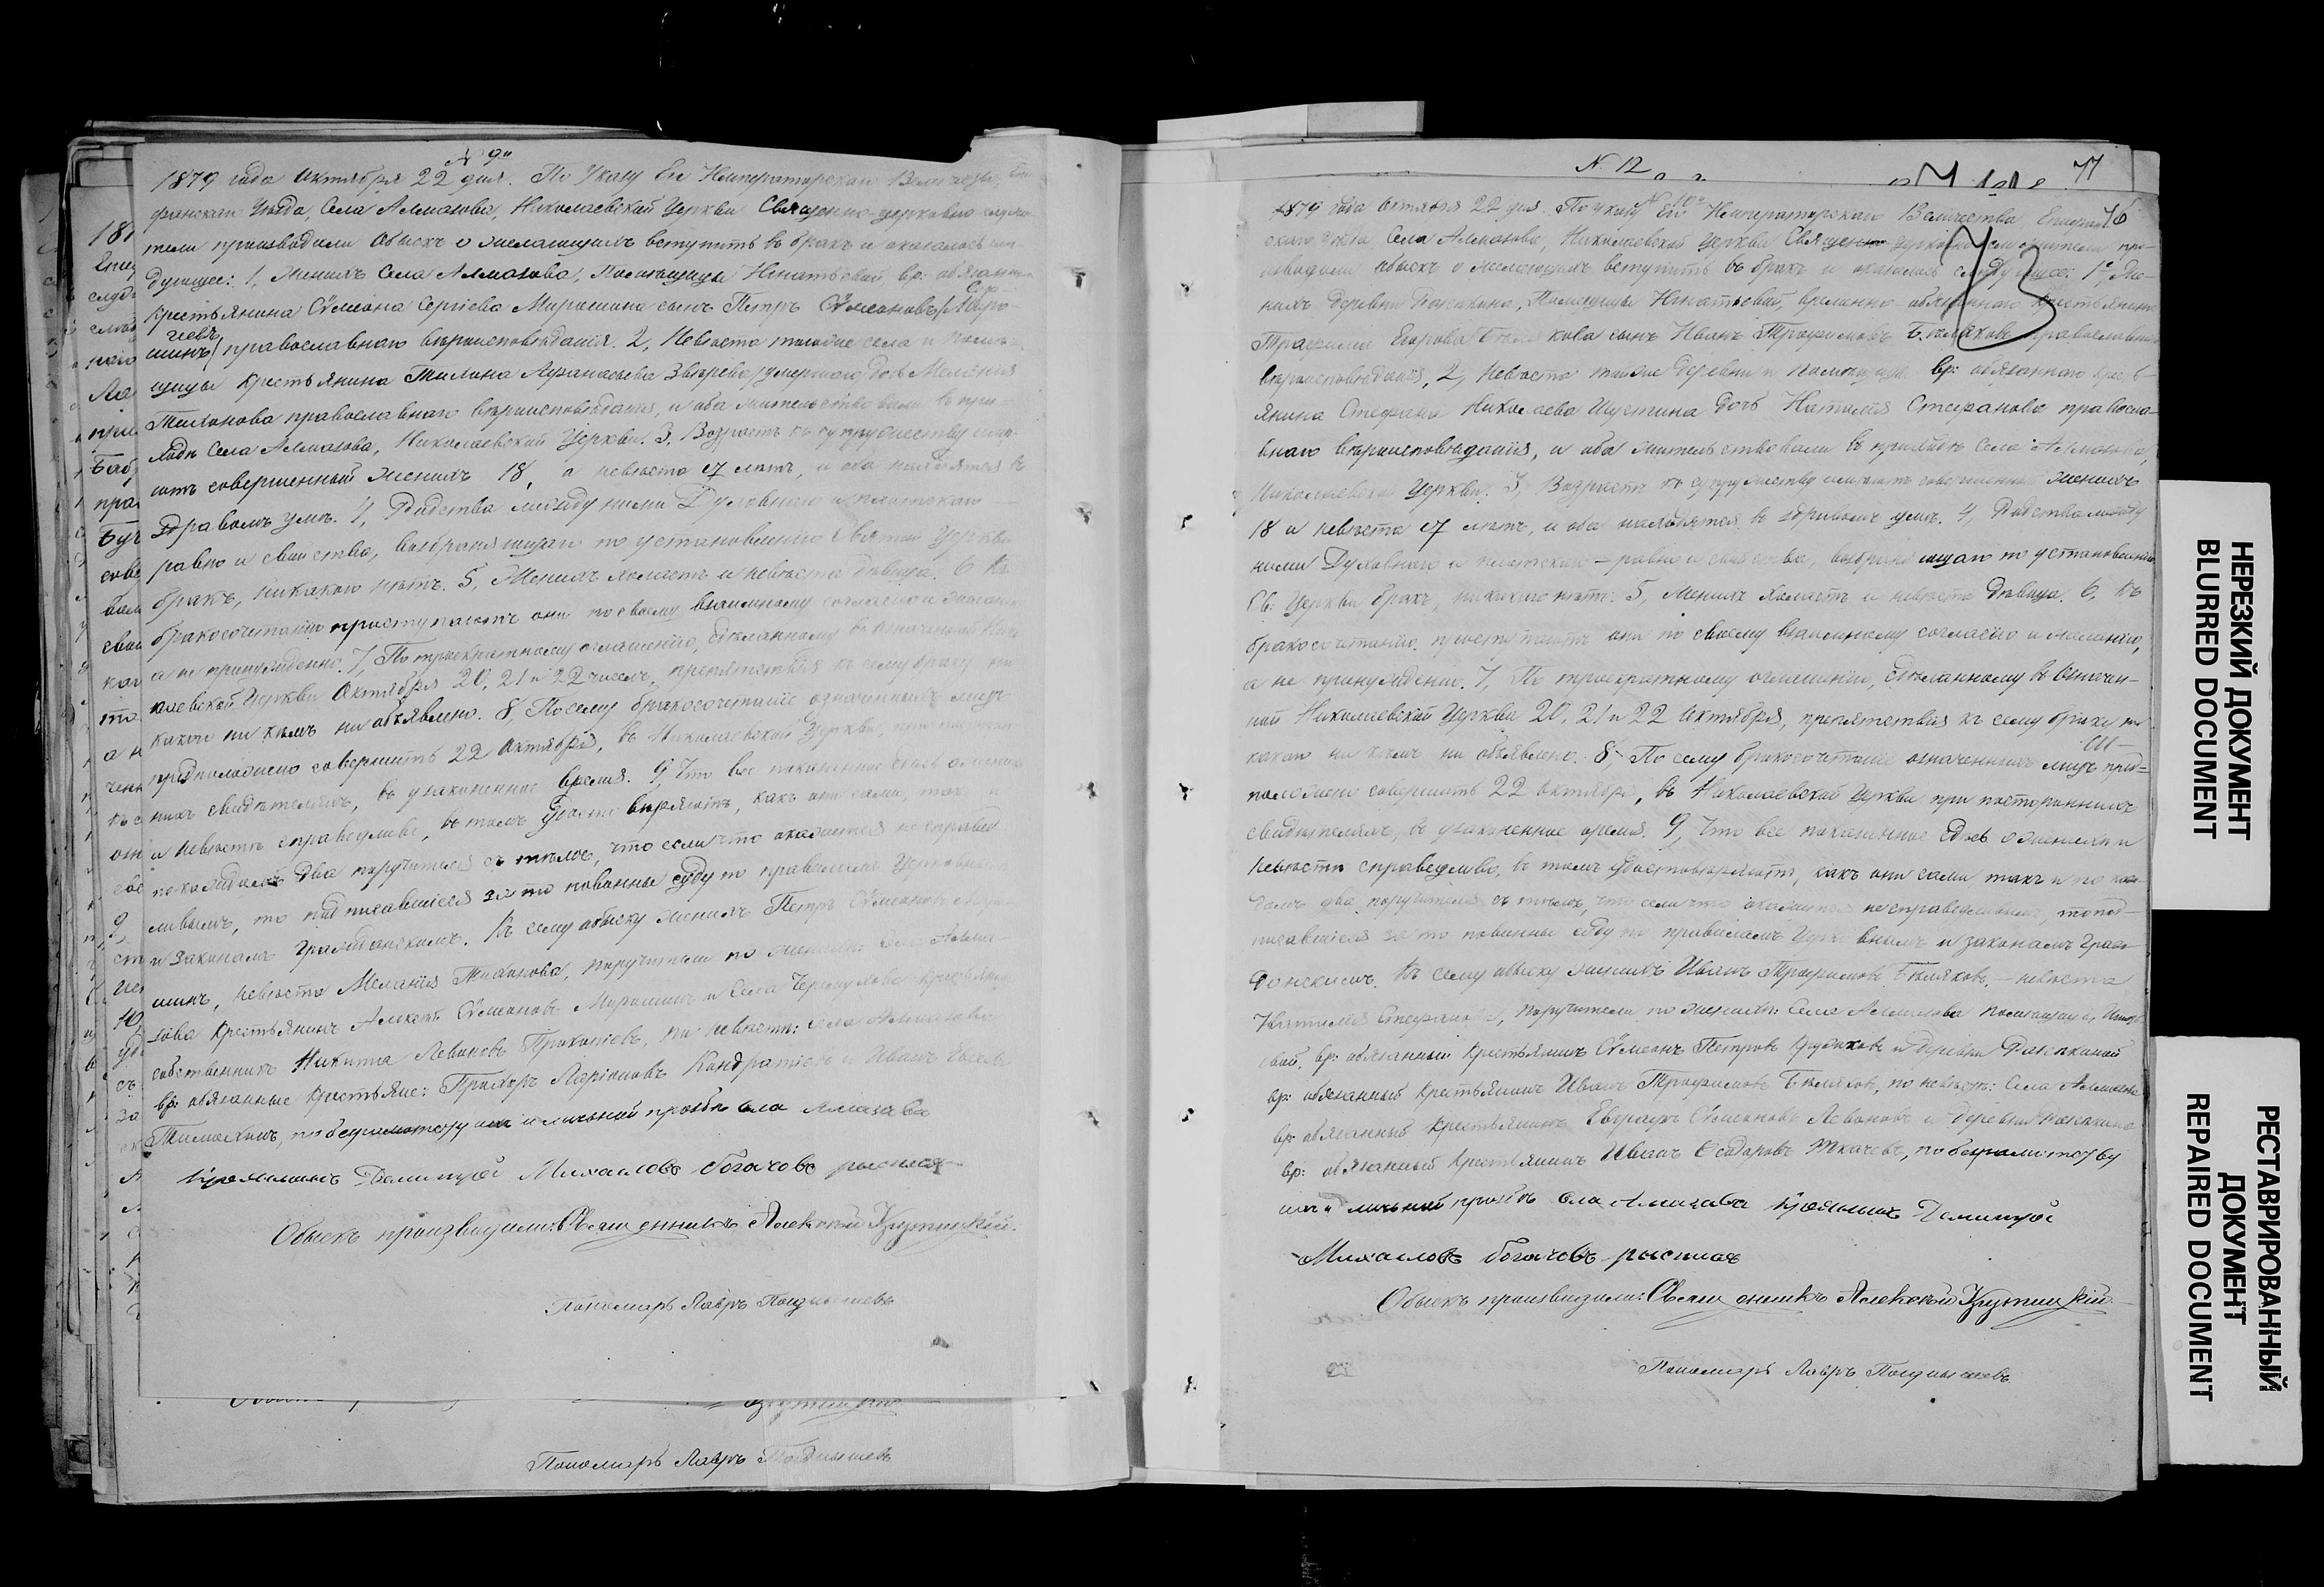 № 9й
1879 года Октября 22 дня. По Указу Его Императорскаго Величества, Епи-
фанскаго Уѣзда, Села Алмазова, Николаевской Церкви Священно-церковно-служи-
тели производили обыскъ о желающихъ вступить въ бракъ и оказалось слѣ-
дующее: 1, Женихъ Села Алмазова, Помѣщицы Игнатьевой, вр: обязаннаго
крестьянина Сѵмеона Сергіева Мирошина сынъ Петръ Сѵмеоновъ
шинъ/ православнаго вѣроисповѣданія. 2, Невѣста тогоже села и помѣ-
щицы крестьянина Тихона Аѳанасьева Звѣрева /умершаго дочь Меланія
Тихонова православнаго вѣроисповѣданія, и оба жительствовали въ при-
ходѣ Села Алмазова, Николаевской Церкви. 3, Возрастъ къ супружеству имѣ-
ютъ совершенный женихъ 18, а невѣста 17 лѣтъ, и оба находятся въ
здравомъ умѣ. 4, Родства между ними Духовнаго и плотскаго
равно и свойства, возбраняющаго по установленію Святой Церкви
бракъ, никакого нѣтъ. 5, Женихъ холостъ и невѣста дѣвица. 6 Къ
бракосочетанію приступаютъ они по своему взаимному согласію и желанію
а не принужденно. 7, По троекратному оглашенію, сдѣланному въ означенной Нико-
лаевской Церкви Октября 20, 21 и 22 чиселъ, препятствія къ сему браку ни-
какого ни кѣмъ ни объявлено. 8, Посему бракосочетаніе означенныхъ лицъ
предположено совершить 22 Октября, въ Николаевской Церкви, при посторон-
нихъ свидѣтеляхъ, въ узаконенное время. 9, Что все показанное здѣсь о женихѣ
и невѣстѣ справедливо, въ томъ удостовѣряютъ, какъ они сами, такъ и
по каждомъ два поручителя съ тѣмъ, что если что окажется несправед-
ливымъ, то подписавшіеся за то повинны суду по правиламъ Церковнымъ
и законамъ Гражданскимъ. Къ сему обыску женихъ Петръ Сѵмеоновъ Миро-
шинъ, невѣста Меланія Тихонова, поручители по женихѣ: Села Алма-
зова крестьянинъ Алексѣй Сѵмеоновъ Мирошинъ и Села
собственникъ Никита Левоновъ Прокопіевъ, по невѣстѣ: села Алмазова
вр: обязанные крестьяне: Прохоръ Ларіоновъ Кондратіевъ и Иванъ
Тимохинъ, по безграмотству ихъ и личной прозбѣ села Алмазова
Димитрій Михаиловъ Богачовъ
Обыскъ производили: Священникъ Алексѣй Крутицкій.
Пономарь Лавръ Позднышевъ
Пономарь Лавръ Позднышевъ
N. 12
77
76
73
1879 года Октября 22 дня. По указу Его Императорскаго Величества, Епифан-
скаго уѣзда, Села Алмазова, Николаевской Церкви Священно церковно служители про-
изводили обыскъ о желающихъ вступить въ бракъ и оказалось слѣдующее: 1е, Же-
нихъ деревни Помѣщицы Игнатьевой, временно-обязаннаго крестьянина
Трофима Егорова Бѣлякова сынъ Иванъ Трофимовъ Бѣляковъ православнаго
вѣроисповѣданія, 2, Невѣста тойже деревни и помѣщицы вр: обязаннаго кресть-
янина Стефана Николаева Шустина дочь Наталія Стефанова правосла-
внаго вѣроисповѣданія, и оба жительствовали въ приходѣ Села Алмазова,
Николаевской Церкви. 3, Возрастъ къ супружеству имѣютъ совершенный женихъ
18 и невѣста 17 лѣтъ, и оба находятся въ здравомъ умѣ. 4, Родства между
ними Духовнаго и плотскаго – равно и свойства, возбраняющаго по установленію
Св: Церкви бракъ, никакого нѣтъ. 5, Женихъ холостъ и невѣста дѣвица. 6, Къ
бракосочетанію приступаютъ они по своему взаимному согласію и желанію,
а не принужденно. 7, По троекратному оглашенію, сдѣланному въ означен-
ной Николаевской Церкви 20, 21 и 22 Октября, препятствія къ сему браку ни
какаго ни кѣмъ ни объявлено. 8, По сему бракосочетаніе означенныхъ лицъ пред-
положено совершить 22 октября, въ Николаевской Церкви при постороннихъ
свидѣтеляхъ, въ узаконенное время. 9, Что все показанное здѣсь о женихѣ и
невѣстѣ справедливо, въ томъ удостовѣряютъ, какъ они сами такъ и по каж-
домъ два поручителя съ тѣмъ, что если что окажется несправедливымъ, то под-
писавшіеся за то повинны суду по правиламъ Церковнымъ и законамъ Граж-
данскимъ. Къ сему обыску женихъ Иванъ Трофимовъ Бѣляковъ, – невѣста
Наталія Стефанова, поручители по женихѣ: Села Алмазова помѣщицы Игнать-
евой, вр: обязанный крестьянинъ Сѵмеонъ Петровъ и деревни
вр: обязанный крестьянинъ Иванъ Трофимовъ Бѣляковъ, по невѣстѣ: Села Алмазова
вр: обязанный крестьянинъ Евграфъ Сѵмеоновъ Левоновъ и деревни
вр: обязанный крестьянинъ Иванъ Ѳедоровъ Ткачевъ, по безграмотству
ихъ и личной прозбѣ села Алмазова Димитрій
Михаиловъ Богачовъ
Обыскъ производили: Священникъ Алексѣй Крутицкій.
Пономарь Лавръ Позднышевъ
НЕРЕЗКИЙ ДОКУМЕНТ
BLURRED DOCUMENT
РЕСТАВРИРОВАННЫЙ
ДОКУМЕНТ
REPAIRED DOCUMENT